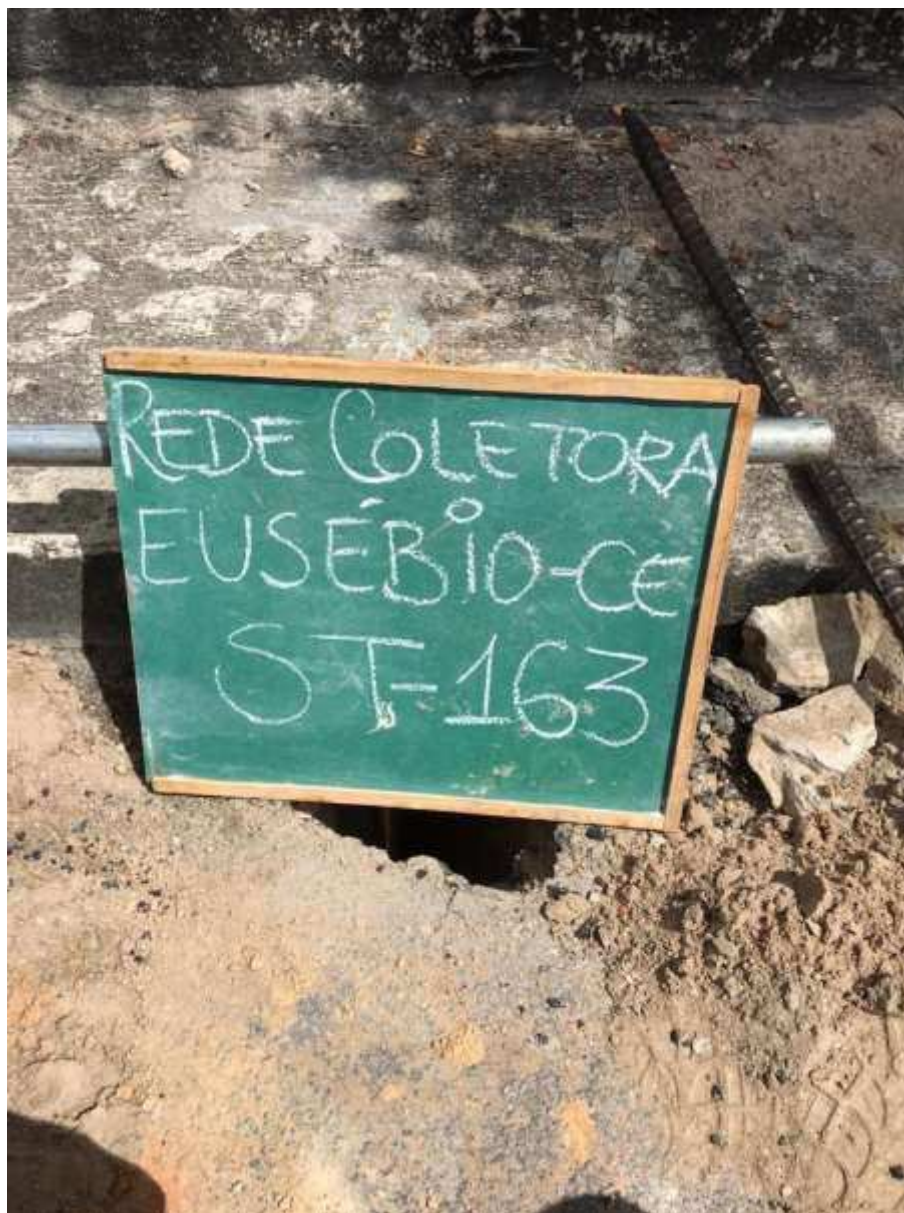 REDE COLETORA
EUSÉBIO-CE
ST-163